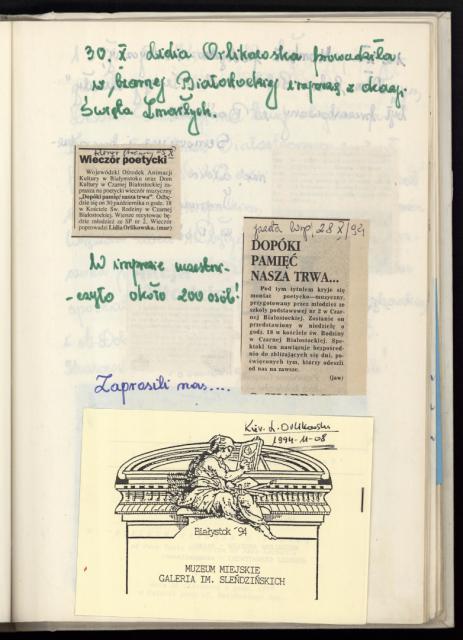 30. X Lidia Orlikowska prowadziła
w Czarnej Białostockiej imprezę z okazji
Święta Zmarłych.
Wieczór poetycki
Wojewódzki Ośrodek Animacji
Kultury w Białymstoku oraz Dom
Kultury w Czarnej Białostockiej za-
prasza na poetycki wieczór muzyczny
„Dopóki pamięć nasza trwa". Odbę-
dzie się on 30 października o godz. 18
w Kościele Św. Rodziny w Czarnej
Białostockiej. Wiersze recytować bę-
dzie młodzież ze SP nr 2. Wieczór
poprowadzi Lidia Orlikowska. (mar)
gazeta Wsp. 28 X/94
DOPÓKI
PAMIĘĆ
NASZA TRWA...
Pod tym tytułem kryje się
montaż poetycko-muzyczny,
przygotowany przez młodzież ze
szkoły podstawowej nr 2 w Czar-
nej Białostockiej. Zostanie on
przedstawiony w niedzielę o
godz. 18 w kościele św. Rodziny
w Czarnej Białostockiej. Spe-
ktakl ten nawiązuje bezpośred-
nio do zbliżających się dni, po-
święconych tym, którzy odeszli
od nas na zawsze.
(jaw)
W imprezie uczestni-
-czyło około 200 osób!
Zaprosili nas....
Kier. L. Orlikowska
1994-11-08
Białystok '94
MUZEUM MIEJSKIE
GALERIA IM. SLEŃDZIŃSKICH